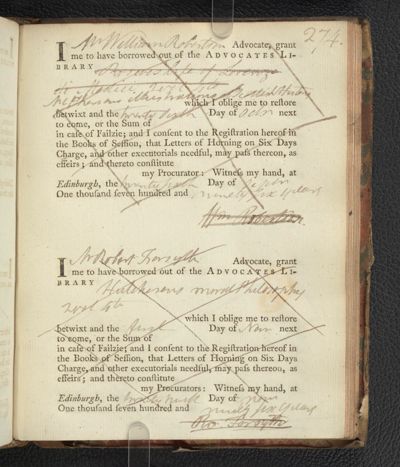 274.
I Mr William Robertson Advocate, grant
me to have borrowed out of the ADVOCATES LI-
BRARY Life of Lorenzo
de Medici
which I oblige me to reſtore
betwixt and the twenty sixth Day of next
to come, or the Sum of
in caſe of Failzie; and I conſent to the Regiſtration hereof in
the Books of Seſſion, that Letters of Horning on Six Days
Charge, and other executorials needful, may paſs thereon, as
effeirs; and thereto conſtitute
my Procurator: Witneſs my hand, at
Edinburgh, the twenty sixth Day of
One thouſand ſeven hundred and ninety six years
Wm Robertson
I Mr Robert Forsyth Advocate, grant
me to have borrowed out of the ADVOCATES LI-
BRARY Hutchesons moral Philosophy
4to
which I oblige me to reſtore
betwixt and the first Day of next
to come, or the Sum of
in caſe of Failzie; and I conſent to the Regiſtration hereof in
the Books of Seſſion, that Letters of Horning on Six Days
Charge, and other executorials needful, may paſs thereon, as
effeirs; and thereto conſtitute
my Procurators: Witneſs my hand, at
Edinburgh, the Day of
One thouſand ſeven hundred and ninety six years
Forsyth